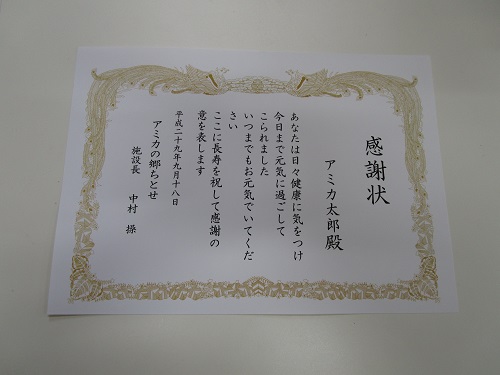 感謝状
アミカ太郎殿
あなたは日々健康に気をつけ
今日まで元気に過ごして
こられました
いつまでもお元気でいてくだ
さい
ここに長寿を祝して感謝の
意を表します
平成二十九年九月十八日
アミカの郷ちとせ
施設長　中村　操